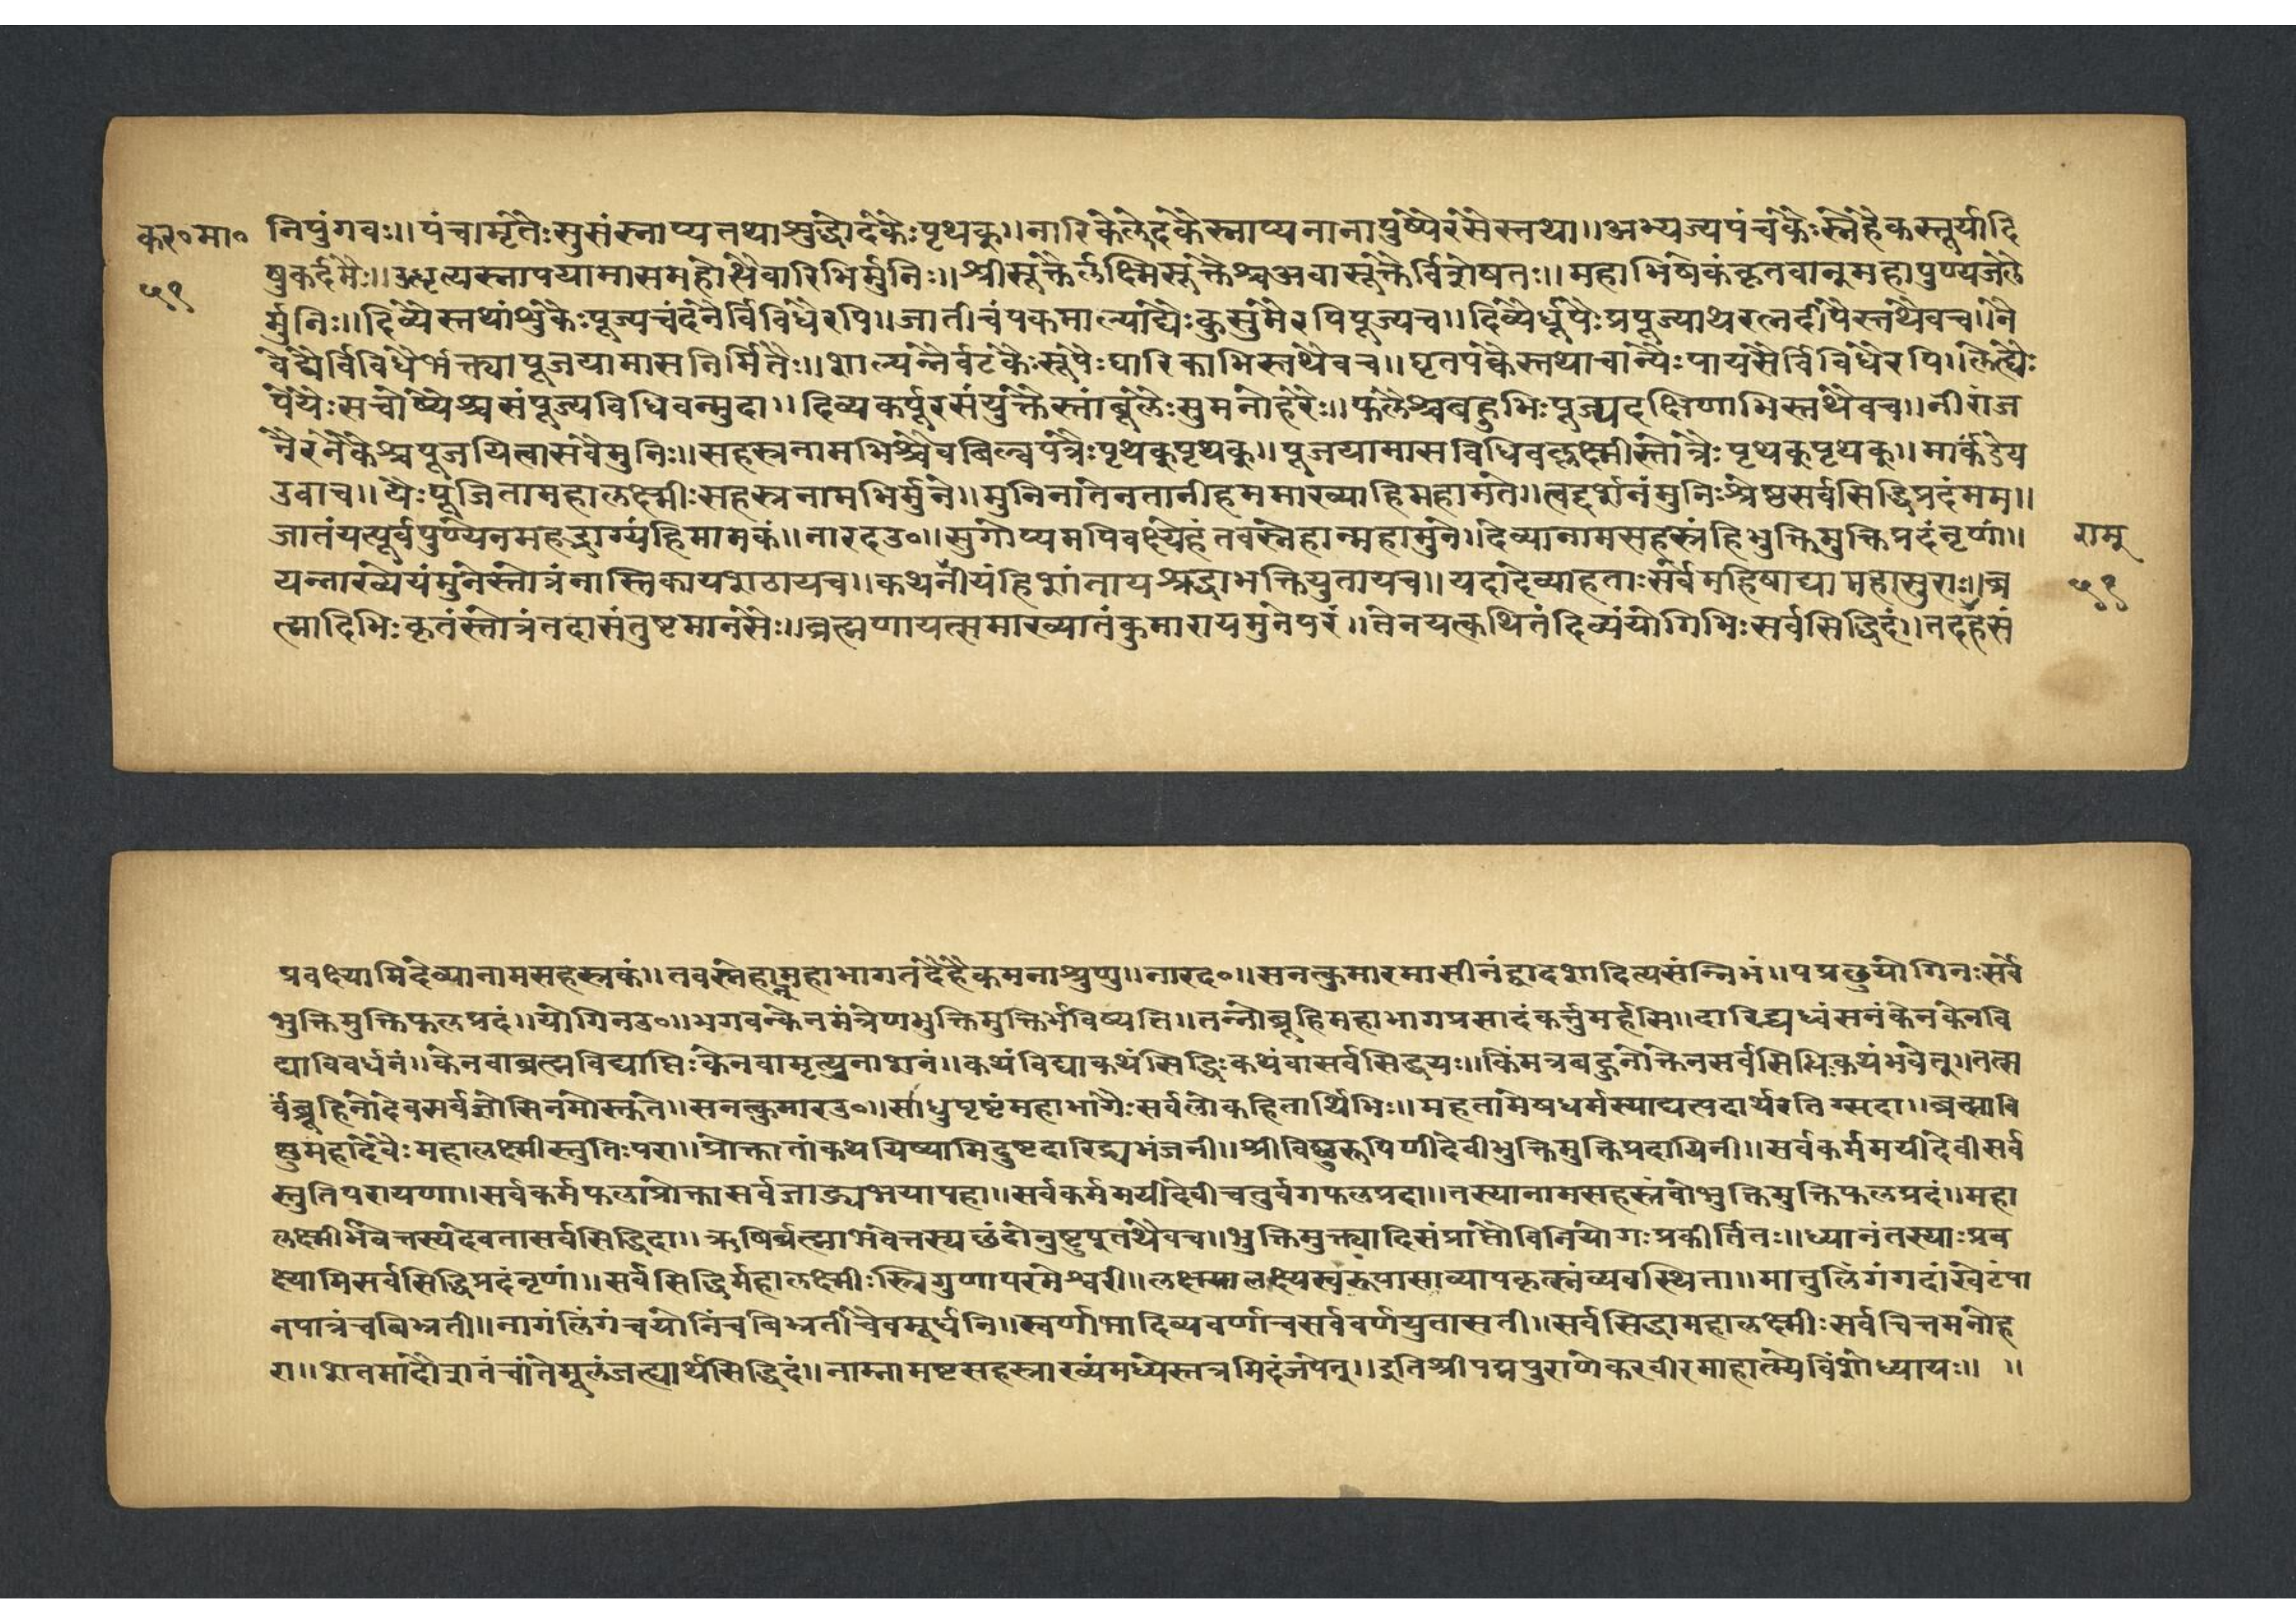 कर॰मा॰
५१
निपुंगवः।।पंचामृतैःसुसंस्नाप्यतथाशुद्धोदकैःपृथक्।।नारिकेलोदकैस्नाप्यनानापुष्पैरसैस्तथा।।अभ्यज्यपंचकैःस्नेहैकस्तूर्यादि
षुकर्दमैः।।उधृत्यस्नापयामासमहोर्थैवारिभिर्मुनिः।।श्रीसूक्तैर्लक्ष्मिसूक्तैश्चअवासूक्तैर्विशेषतः।।महाभिषेकंकृतवान्महापुण्यजलै
र्मुनिः।।दिव्यैस्तथांशुकैःपूज्यचंदनैर्विविधैरपि।।जातीचंपकमाल्याद्यैःकुसुमैरपिपूज्यच।।दिव्यैर्धूपैःप्रपूज्याथरत्नदीपैस्तथैवच।।नै
वेद्यैर्विविधैर्भक्त्यापूजयामासनिर्मितैः।।शाल्यन्नैर्वटकैःसूपैःघारिकाभिस्तथैवच।।घृतपक्वैस्तथाचान्यैःपायसैर्विविधैरपि।लेह्यैः
पेयैःसचोष्यैश्चसंपूज्यविधिवन्मुदा।।दिव्यकर्पूरसंयुक्तैस्तांबूलैःसुमनोहरैः।।फलैश्चबहुभिःपूज्यदक्षिणाभिस्तथैवच।।नीराज
नैरनेकैश्चपूजयित्वासवैमुनिः।।सहस्त्रनामभिश्चैवबिल्वपत्रैःपृथक्पृथक्।।पूजयामासविधिवल्लक्ष्मीस्तोत्रैःपृथक्पृथक्।।मार्कंडेय
उवाच।।यैःपूजितामहालक्ष्मीःसहस्त्रनामभिर्मुने।।मुनिनातेनतानीहममाख्याहिमहामते।।त्वद्दर्शनंमुनिःश्रेष्ठसर्वसिद्धिप्रदंमम।।
जातंयत्पूर्वपुण्येनमहद्भाग्यंहिमामकं।।नारदउ॰।।सुगोप्यमपिवक्ष्येहंतवस्नेहान्महामुने।।देव्यानामसहस्त्रंहिभुक्तिमुक्तिप्रदंनृणां।।
राम्
यन्नाख्येयंमुनेस्तोत्रंनास्तिकायशठायच।।कथनीयंहिशांतायश्रद्धाभक्तियुतायच।।यदादेव्याहताःसर्वेमहिषाद्यामहासुराः।।ब्र
५१
ह्मादिभिःकृतंस्तोत्रंतदासंतुष्टमानसैः।।ब्रह्मणायत्समाख्यातंकुमारायमुनेपरं।।तेनयत्कथितंदिव्यंयोगिभिःसर्वसिद्धिदं।।तदहंसं
प्रवक्ष्यामिदेव्यानामसहस्त्रकं।।तवस्नेहान्महाभागतंदेहैकमनाश्रुणु।।नारद॰।।सनत्कुमारमासीनंद्वादशादित्यसंन्निभं।।पप्रछुयोगिनःसर्वे
भुक्तिमुक्तिफलप्रदं।।योगिनउ॰।।भगवन्केनमंत्रेणभुक्तिमुक्तिर्भविष्यति।।तन्नोब्रूहिमहाभागप्रसादंकर्त्तुमर्हसि।।दारिद्र्यध्वंसनंकेनकेनवि
द्याविवर्धनं।।केनवाब्रह्मविद्याप्तिःकेनवामृत्युनाशनं।।कथंविद्याकथंसिद्धिःकथंवासर्वसिद्धयः।।किमत्रबहुनोक्तेनसर्वसिधिःकथंभवेत्।।तत्स
र्वंब्रूहिनोदेवसर्वज्ञोसिनमोस्तुते।।सनत्कुमारउ॰।।साधुपृष्टंमहाभागैःसर्वलोकहितार्थिभिः।।महतामेषधर्मस्याद्यत्पदार्थरतिस्सदा।।ब्रह्मावि
ष्णुमहादेवैःमहालक्ष्मीस्तुतिःपरा।।प्रोक्तातांकथयिष्यामिदुष्टदारिद्र्यभंजनी।।श्रीविष्णुरूपिणीदेवीभुक्तिमुक्तिप्रदायिनी।।सर्वकर्ममयीदेवीसर्व
स्तुतिपरायणा।।सर्वकर्मफलाप्रोक्तासर्वजाड्यभयापहा।।सर्वकर्ममयीदेवीचतुर्वर्गफलप्रदा।।तस्यानामसहस्त्रंवोभुक्तिमुक्तिफलप्रदं।।महा
लक्ष्मीर्भवेत्तस्यदेवतासर्वसिद्धिदा।।ऋषिर्ब्रह्माभवेत्तस्यछंदोनुष्टुप्तथैवच।।भुक्तिमुक्त्यादिसंप्राप्तौविनियोगःप्रकीर्तितः।।ध्यानंतस्याःप्रव
क्ष्यामिसर्वसिद्धिप्रदंनृणां।।सर्वसिद्धिर्महालक्ष्मीःस्त्रिगुणापरमेश्वरी।।लक्ष्यालक्ष्यस्वरूपासाव्यापकृत्स्नंव्यवस्थिता।।मातुलिंगंगदांखेटंपा
नपात्रंचबिभ्रती।।नागंलिंगंचयोनिंचबिभ्रतींचैवमूर्धनि।।स्वर्णाभादिव्यवर्णाचसर्ववर्णयुतासती।।सर्वसिद्धामहालक्ष्मीःसर्वचित्तमनोह
रा।।शतमादौशतंचांतेमूलंजप्त्यार्थसिद्धिदं।।नाम्नामष्टसहस्त्राख्यंमध्येस्तत्रमिदंजपेत्।।इतिश्रीपद्मपुराणेकरवीरमाहात्म्येविंशोध्यायः।। ।।